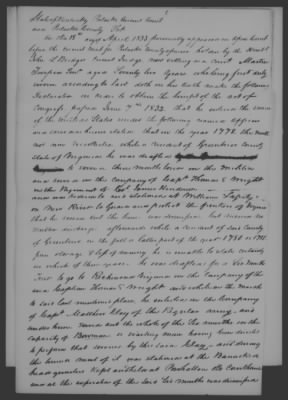 State of Kentucky Pulaski Circuit Court
and Pulaski County Sct
On this 18th day of April 1833 personally appeared in open Court
before the circuit court for Pulaski County aforesaid holden by the Honbl
John L Bridges Circuit Judge now sitting as a court Martin
Turpin Senr aged Seventy two years who being first duly
sworn according to law doth on his oath make the following
declaration in order to obtain the benefit of the act of
Congress passed June 7th 1832 that he entered the service
of the United States under the following named officers
and served as herein stated that in the year 1778 the month
not now recollected while a resident of Greenbrier County
State of Virginia he was drafted
to serve a three month tour in the militia
and served in the company of Capt Thomas Wright
in the Regiment of Col James Henderson
and was rendezvoused and stationed at William Lafferty's
on New River to guard and protect the frontier of Virginia
that he served out the time was discharged but received no
written discharge afterwards while a resident of said County
of Greenbrier in the fall or latter part of the year 1780 or 1781
from old age & loss of memory he is unable to state certainly
in which of these years he was drafted for a Six Month
Tour to go to Richmond Virginia in the Company of the
said Captain Thomas Wright and while on the march
to said last mentioned place he enlisted in the Company
of Capt Matthew Clay of the Regular army and
under him served out the whole of the Six months in the
capacity of Bowman or waiting man having been enlisted
to perform that service by the said Clay and during
the time most of it was stationed at the Barracks
headquarters kept
and at the expiration of the said Six months was discharged